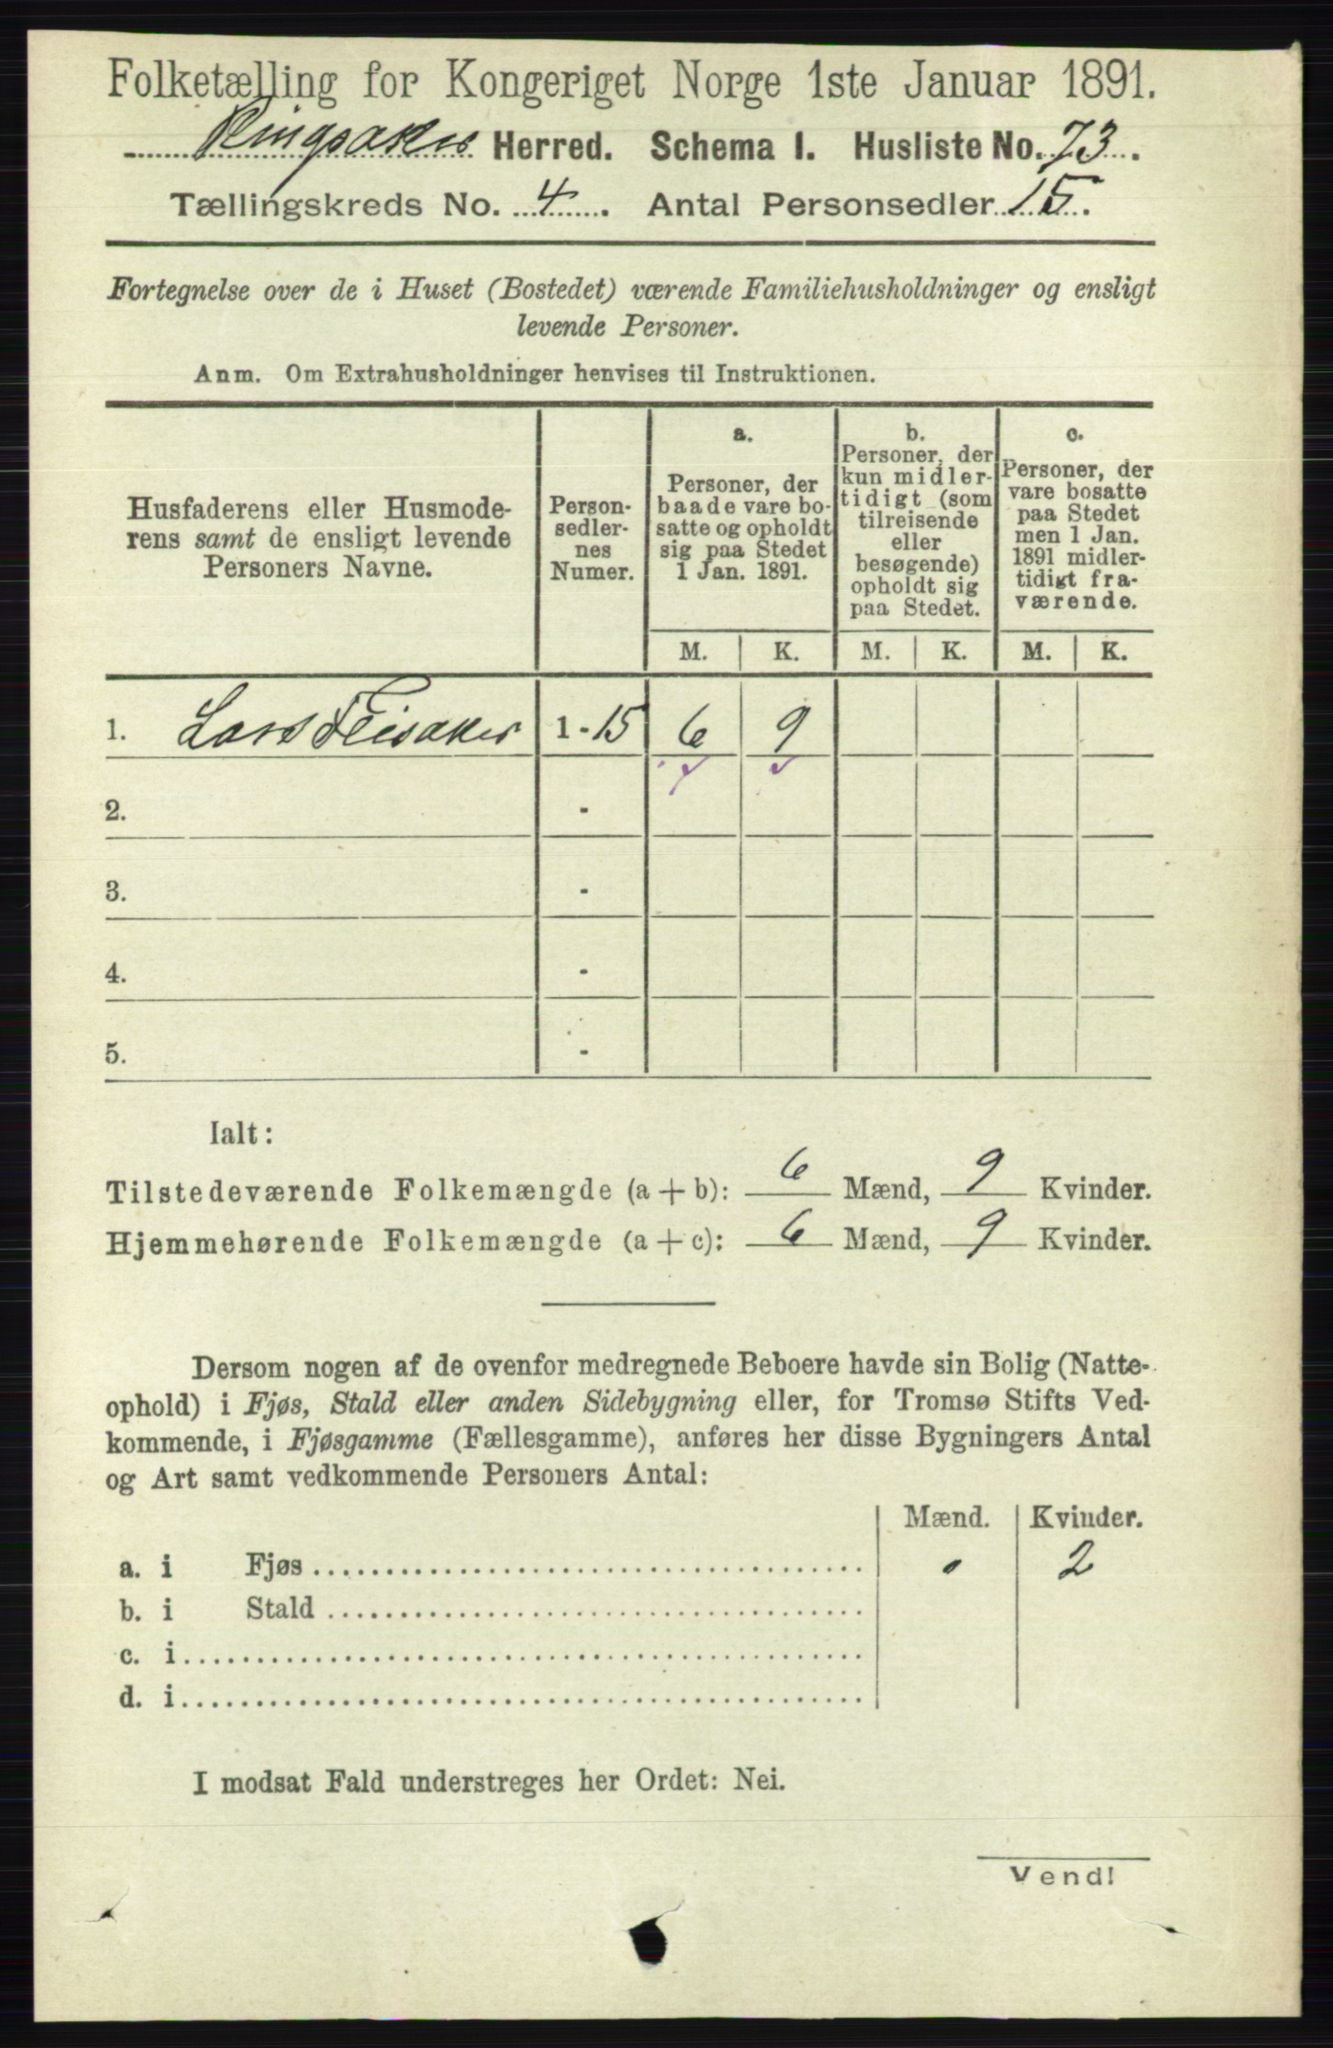 Folketælling for Kongeriget Norge 1ste Januar 1891.
Ringsaker Herred. Schema I. Husliste No. 73.
Tællingskreds No. 4. Antal Personsedler 15.
Fortegnelse over de i Huset (Bostedet) værende Familiehusholdninger og ensligt
levende Personer.
Anm. Om Extrahusholdninger henvises til Instruktionen.
Husfaderens eller Husmode-
rens samt de ensligt levende
Personers Navne.
Person-
sedler-
nes
Numer.
a.
Personer, der
baade vare bo-
satte og opholdt
sig paa Stedet
1 Jan. 1891.
b.
Personer, der
kun midler-
tidigt (som
tilreisende
eller
besøgende)
opholdt sig
paa Stedet.
c.
Personer, der
vare bosatte
paa Stedet
men 1 Jan.
1891 midler-
tidigt fra-
værende.
M. K. M. K. M. K.
1. Lars Feisaker 1-15 6 9
2. -
3. -
4. -
5. -
Ialt:
Tilstedeværende Folkemængde (a + b): 6 Mænd, 9 Kvinder.
Hjemmehørende Folkemængde (a + c): 6 Mænd, 9 Kvinder.
Dersom nogen af de ovenfor medregnede Beboere havde sin Bolig (Natte-
ophold) i Fjøs, Stald eller anden Sidebygning eller, for Tromsø Stifts Ved-
kommende, i Fjøsgamme (Fællesgamme), anføres her disse Bygningers Antal
og Art samt vedkommende Personers Antal:
Mænd. Kvinder.
a. i Fjøs . . . . . . . . . . . . . . . . . . . . • 2
b. i Stald . . . . . . . . . . . . . . . . . . . .
c. i . . . . . . . . . . . . . . . . . . . .
d. i . . . . . . . . . . . . . . . . . . . .
I modsat Fald understreges her Ordet: Nei.
Vend!